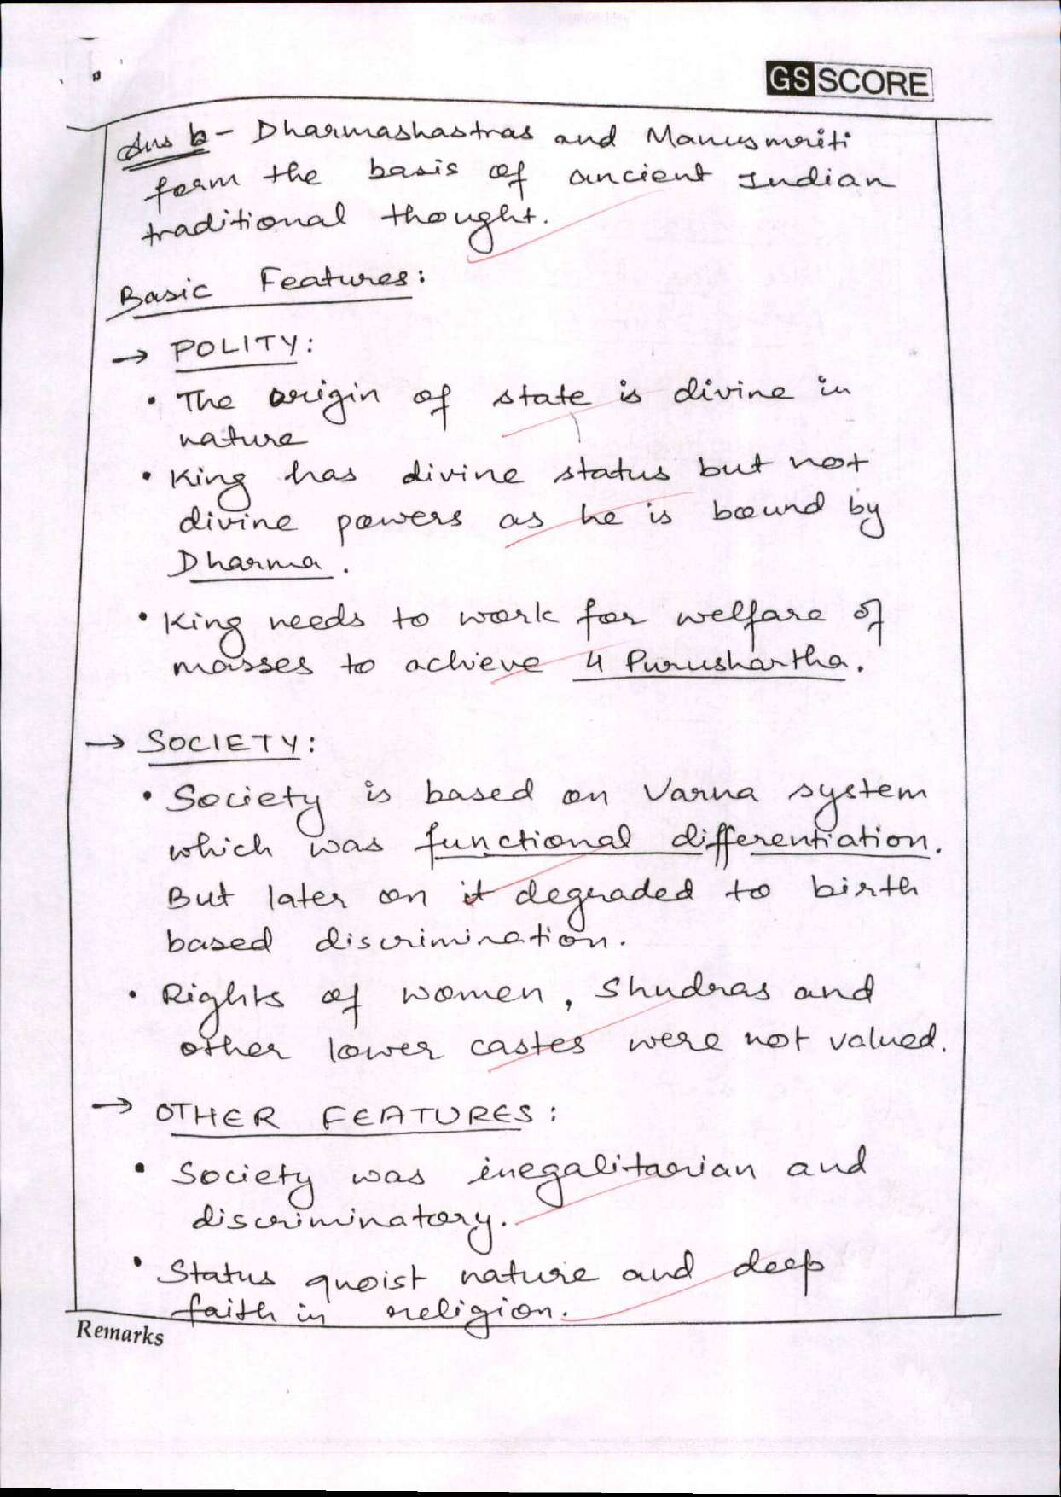 GS SCORE
Ans b- Dharmashastras and Manusmriti
form the basis of ancient Indian
traditional thought.
Basic Features:
→ POLITY:
• The origin of state is divine in
nature
• King has divine status but not
divine powers as he is bound by
Dharma.
• King needs to work for welfare of
masses to achieve 4 Purushartha.
→ SOCIETY:
• Society is based on Varna system
which was functional differentiation.
But later on it degraded to birth
based discrimination.
• Rights of women, Shudras and
other lower castes were not valued.
→ OTHER FEATURES:
• Society was inegalitarian and
discriminatory.
• Status quoist nature and deep
faith in religion.
Remarks